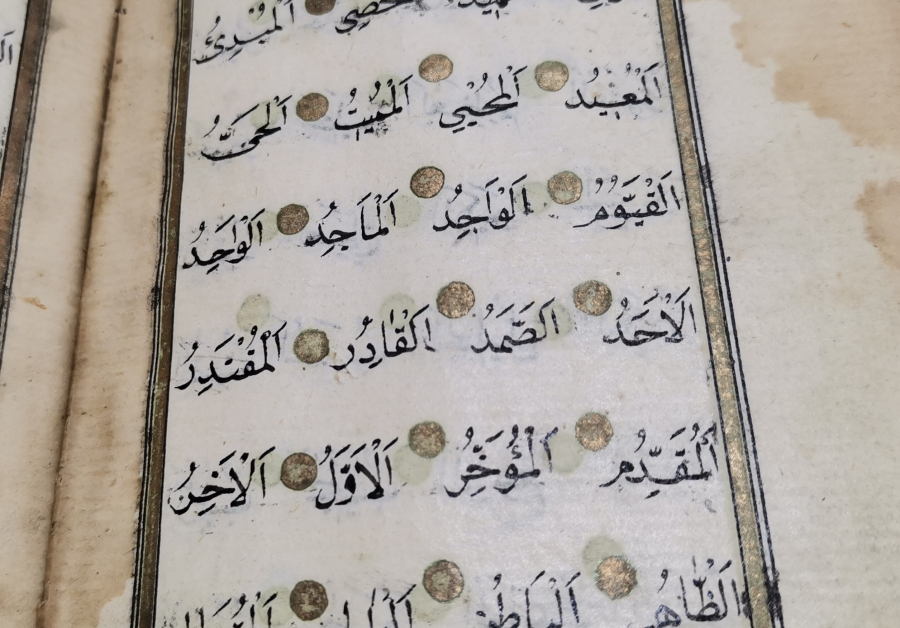 المُحصي المُبْدِئُ
اَلْمُعيْدُ اَلْمُحْيِي اَلْمُمِيْتُ اَلْحَىُّ
اَلْقَيُّوْمُ اَلْوَاجِدُ اَلْمَاجِدُ اَلْوَاحِدُ
اَلْاَحَدُ اَلصَّمَدُ اَلْقَادِرُ اَلْمُقْتَدِرُ
اَلْمُقَدِّمُ اَلْمُؤَخِّرُ اَلْاَوَّلُ اَلْاَخِرُ
اَلظَّاهِرُ اَلْبَاطِنُ